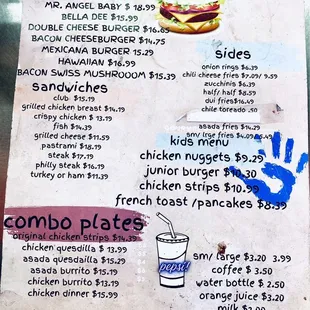 MR. ANGEL BABY $ 18.99
BELLA DEE $15.99
DOUBLE CHEESE BURGER $16.65
BACON CHEESEBURGER $14.75
MEXICANA BURGER 15.29
HAWAIIAN $16.99
BACON SWISS MUSHROOOM $15.39
sandwiches
club $15.19
grilled chicken breast $14.19
crispy chicken $ 13.19
fish $14.39
grilled cheese $11.59
pastrami $18.17
steak $17.19
philly steak $16.19
turkey or ham $11.39
combo plates
original chicken strips $14.39
chicken quesdilla $ 13.99
asada quesdailla $15.29
asada burrito $15.19
chicken burrito $13.19
chicken dinner $15.99
sides
onion rings $6.39
chili cheese fries $7.09/ 9.59
zucchinis $6.39
half/ half $8.59
dui fries$16.49
chile toreado .50
asada fries $14.29
sm/ lrge fries $4.09
kids menu
chicken nuggets $9.29
junior burger $10.30
chicken strips $10.99
french toast /pancakes $8.39
pepsi
sm/ large $3.20 3.99
coffee $ 3.50
water bottle $ 2.50
orange juice $3.20
milk